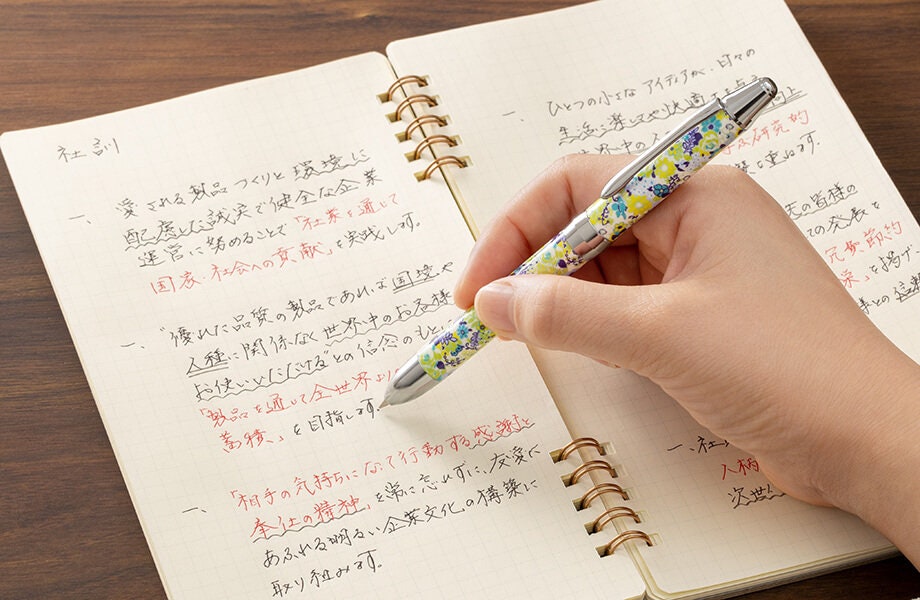 社訓
一、愛される製品づくりと環境に
配慮した誠実で健全な企業
運営に努めることで「社業を通じて
国家・社会への貢献」を実践します。
一、"優れた品質の製品であれば国境や
人種に関係なく世界中のお客様
お使いいただける"との信念のもと
「製品を通じて全世界
蓄積」を目指します。
一、「相手の気持ちになって行動する感謝と
奉仕の精神」を常に忘れずに、友愛に
あふれる明るい企業文化の構築に
取り組みます。
一、ひとつの小さなアイディアが、日々の
生活を楽しくやり快適
世界中の人
研究的
を重ねます。
の皆様の
ての発表を
冗費節約
を掲げ
様との信
一、社
人柄
次世